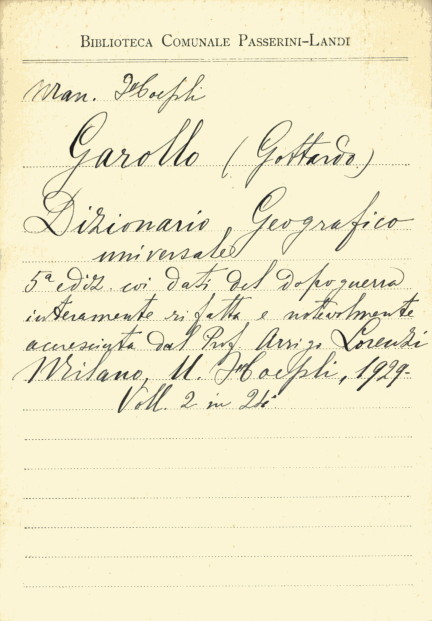 BIBLIOTECA COMUNALE PASSERINI-LANDI
Man. Hoepli
Garollo (Gottardo)
Dizionario Geografico
universale
5ª ediz. coi dati del dopoguerra
interamente rifatta e notevolmente
accresciuta dal Prof. Arrigo Lorenzi
Milano, U. Hoepli, 1929-
Voll. 2 in 24°